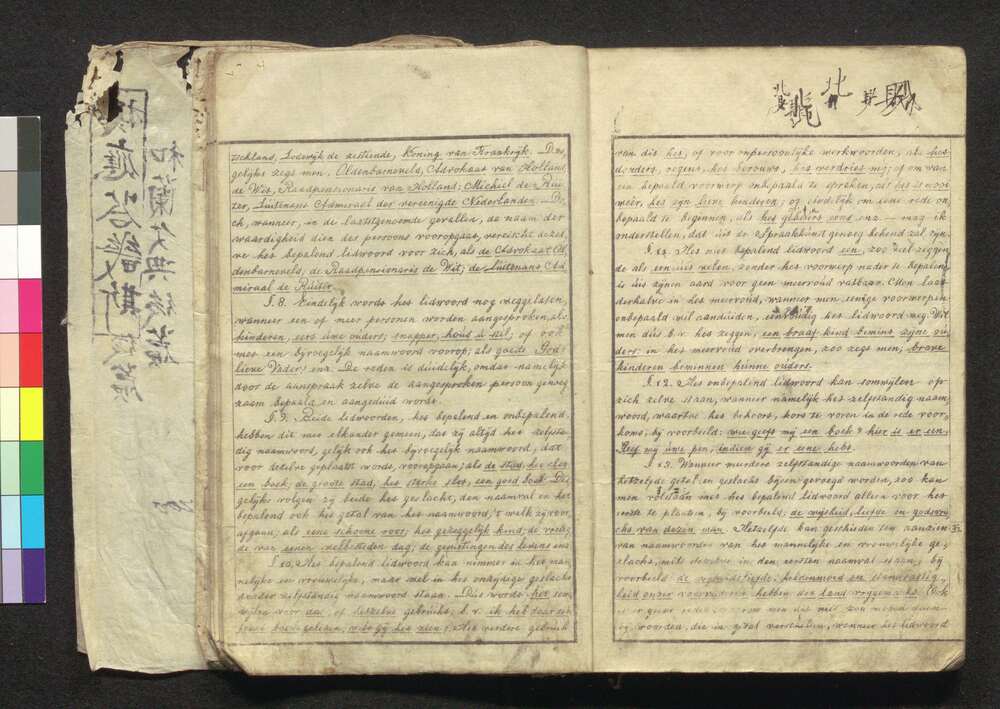 zschland, Lodewijk de zestiende, Koning van Frankrijk. Des,
gelijks zegt men, Oldenbarneveld, Advokaat van Holland,
de Wit, Raadpensionaris van Holland; Michiel de Rui=
ter, Luitenant Admiraal der vereenigde Nederlanden. Do
ch, wanneer, in de laatstgenoemde gevallen, de naam der
waardigheid dien des persoons vooropgaat, vereischt deze
het bepalend lidwoord voor zich, als de Advokaat Ol
denbarneveld, de Raadpensionaris de Wit, de Luitenant Ad
miraal de Ruiter.
§. 8. Eindelijk wordt het lidwoord nog weggelaten,
wanneer een of meer personen worden aangesproken, als
kinderen, eert uwe ouders; snapper, houd u stil; of ook
met een bijvoegelijk naamwoord voorop, als goede God
lieve Vader; enz. De reden is duidelijk, omdat namelijk
door de aanspraak zelve de aangesproken persoon genoeg
zaam bepaald en aangeduid wordt.
§. 9. Beide lidwoorden, het bepalend en onbepalend,
hebben dit met elkander gemeen, dat zij altijd het zelfsta
dig naamwoord, gelijk ook het bijvoegelijk naamwoord, dat
voor hetzelve geplaatst wordt, vooropgaan; als de stad, het slot
een boek, de groote stad, het sterke slot, een goed boek. De
gelijks volgen zij beide het geslacht, den naamval en het
bepalend ook het getal van het naamwoord, 't welk zij voor
afgaan, als eene schoone roos, het gezeggelijk kind, de vreug
de van eenen welbesteden dag, de genietingen des levens enz
§. 10. Het bepalend lidwoord kan nimmer in het man
nelijke en vrouwelijke, maar wel in het onzijdige geslacht
zonder zelfstandig naamwoord staan. Dus wordt het som
wijlen voor dat, of hetzelve gebruikt, b. v. ik heb
boek gelezen, wilt gij het zien? Het verdere gebruik
van dit het, of voor onpersoonlijke werkwoorden, als het
dondert, regent, het berouwt, het verdriet mij; of om van
een bepaald voorwerp onbepaald te spreken, als het is mooi
weer, het zijn lieve kinderen; of eindelijk om eene rede on
bepaald te beginnen, als het gebeurde eens enz — mag ik
onderstellen, dat uit de Spraakkunst genoeg bekend zal zijn.
§. 11. Het niet bepalend lidwoord een, zoo veel zeggen
de als een uit velen, zonder het voorwerp nader te bepalen,
is uit zijnen aard voor geen meervoud vatbaar. Men laat
derhalve in het meervoud, wanneer men eenige voorwerpen
onbepaald wil aanduiden, eenvoudig het lidwoord weg. Wil
men dus b. v. het zeggen, een braaf kind bemint zijne ou
ders: in het meervoud overbrengen, zoo zegt men, brave
kinderen beminnen hunne ouders.
§. 12. Het onbepalend lidwoord kan somwijlen op
zich zelve staan, wanneer namelijk het zelfstandig naam,
woord, waartoe het behoort, kort te voren in de rede voor,
komt, bij voorbeeld: wie geeft mij een boek? hier is er een.
Geef mij uwe pen, indien gij er eene hebt.
§. 13. Wanneer meerdere zelfstandige naamwoorden van
hetzelfde getal en geslacht bijeen gevoegd worden, zoo kan
men volstaan met het bepalend lidwoord alleen voor het
eerste te plaatsen, bij voorbeeld, de wijsheid, liefde en godsvru
cht van dezen man. Hetzelfde kan geschieden ten aanzien
van naamwoorden van het mannelijke en vrouwelijke ge,
slacht, mits dezelve in den eersten naamval staan, bij
voorbeeld de
heid onzer voorvaderen hebben het land vrijgemaakt. Ook
is er geene reden, waarom men dit niet zou mogen doen
bij woorden, die in getal verschillen, wanneer het lidwoord